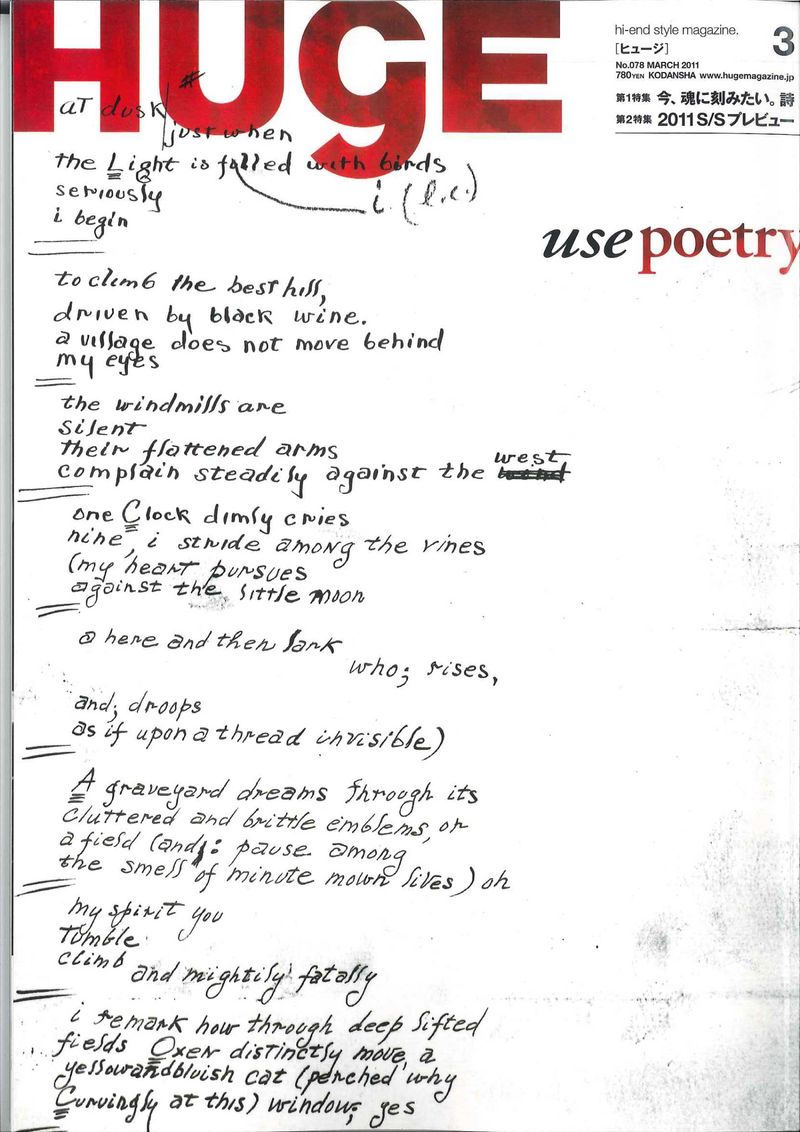 HUgE
hi-end style magazine.
[ヒュージ]
3
No.078 MARCH 2011
780YEN KODANSHA www.hugemagazine.jp
第1特集 今、魂に刻みたい。詩
第2特集 2011 S/Sプレビュー
use poetry
#
at dusk
just when
the Light is filled with birds
seriously
i. (l.c.)
i begin
to climb the best hill,
driven by black wine.
a village does not move behind
my eyes
the windmills are
silent
their flattened arms
west
complain steadily against the
one Clock dimly cries
nine, i stride among the vines
(my heart pursues
against the little moon
a here and then lark
who; rises,
and; droops
as if upon a thread invisible)
A graveyard dreams through its
cluttered and brittle emblems, or
a field (and: pause among
the smell of minute mown lives) oh
my spirit you
tumble
climb
and mightily fatally
i remark how through deep lifted
fields Oxen distinctly move, a
yellowandbluish cat (perched why
Curvingly at this) window; yes